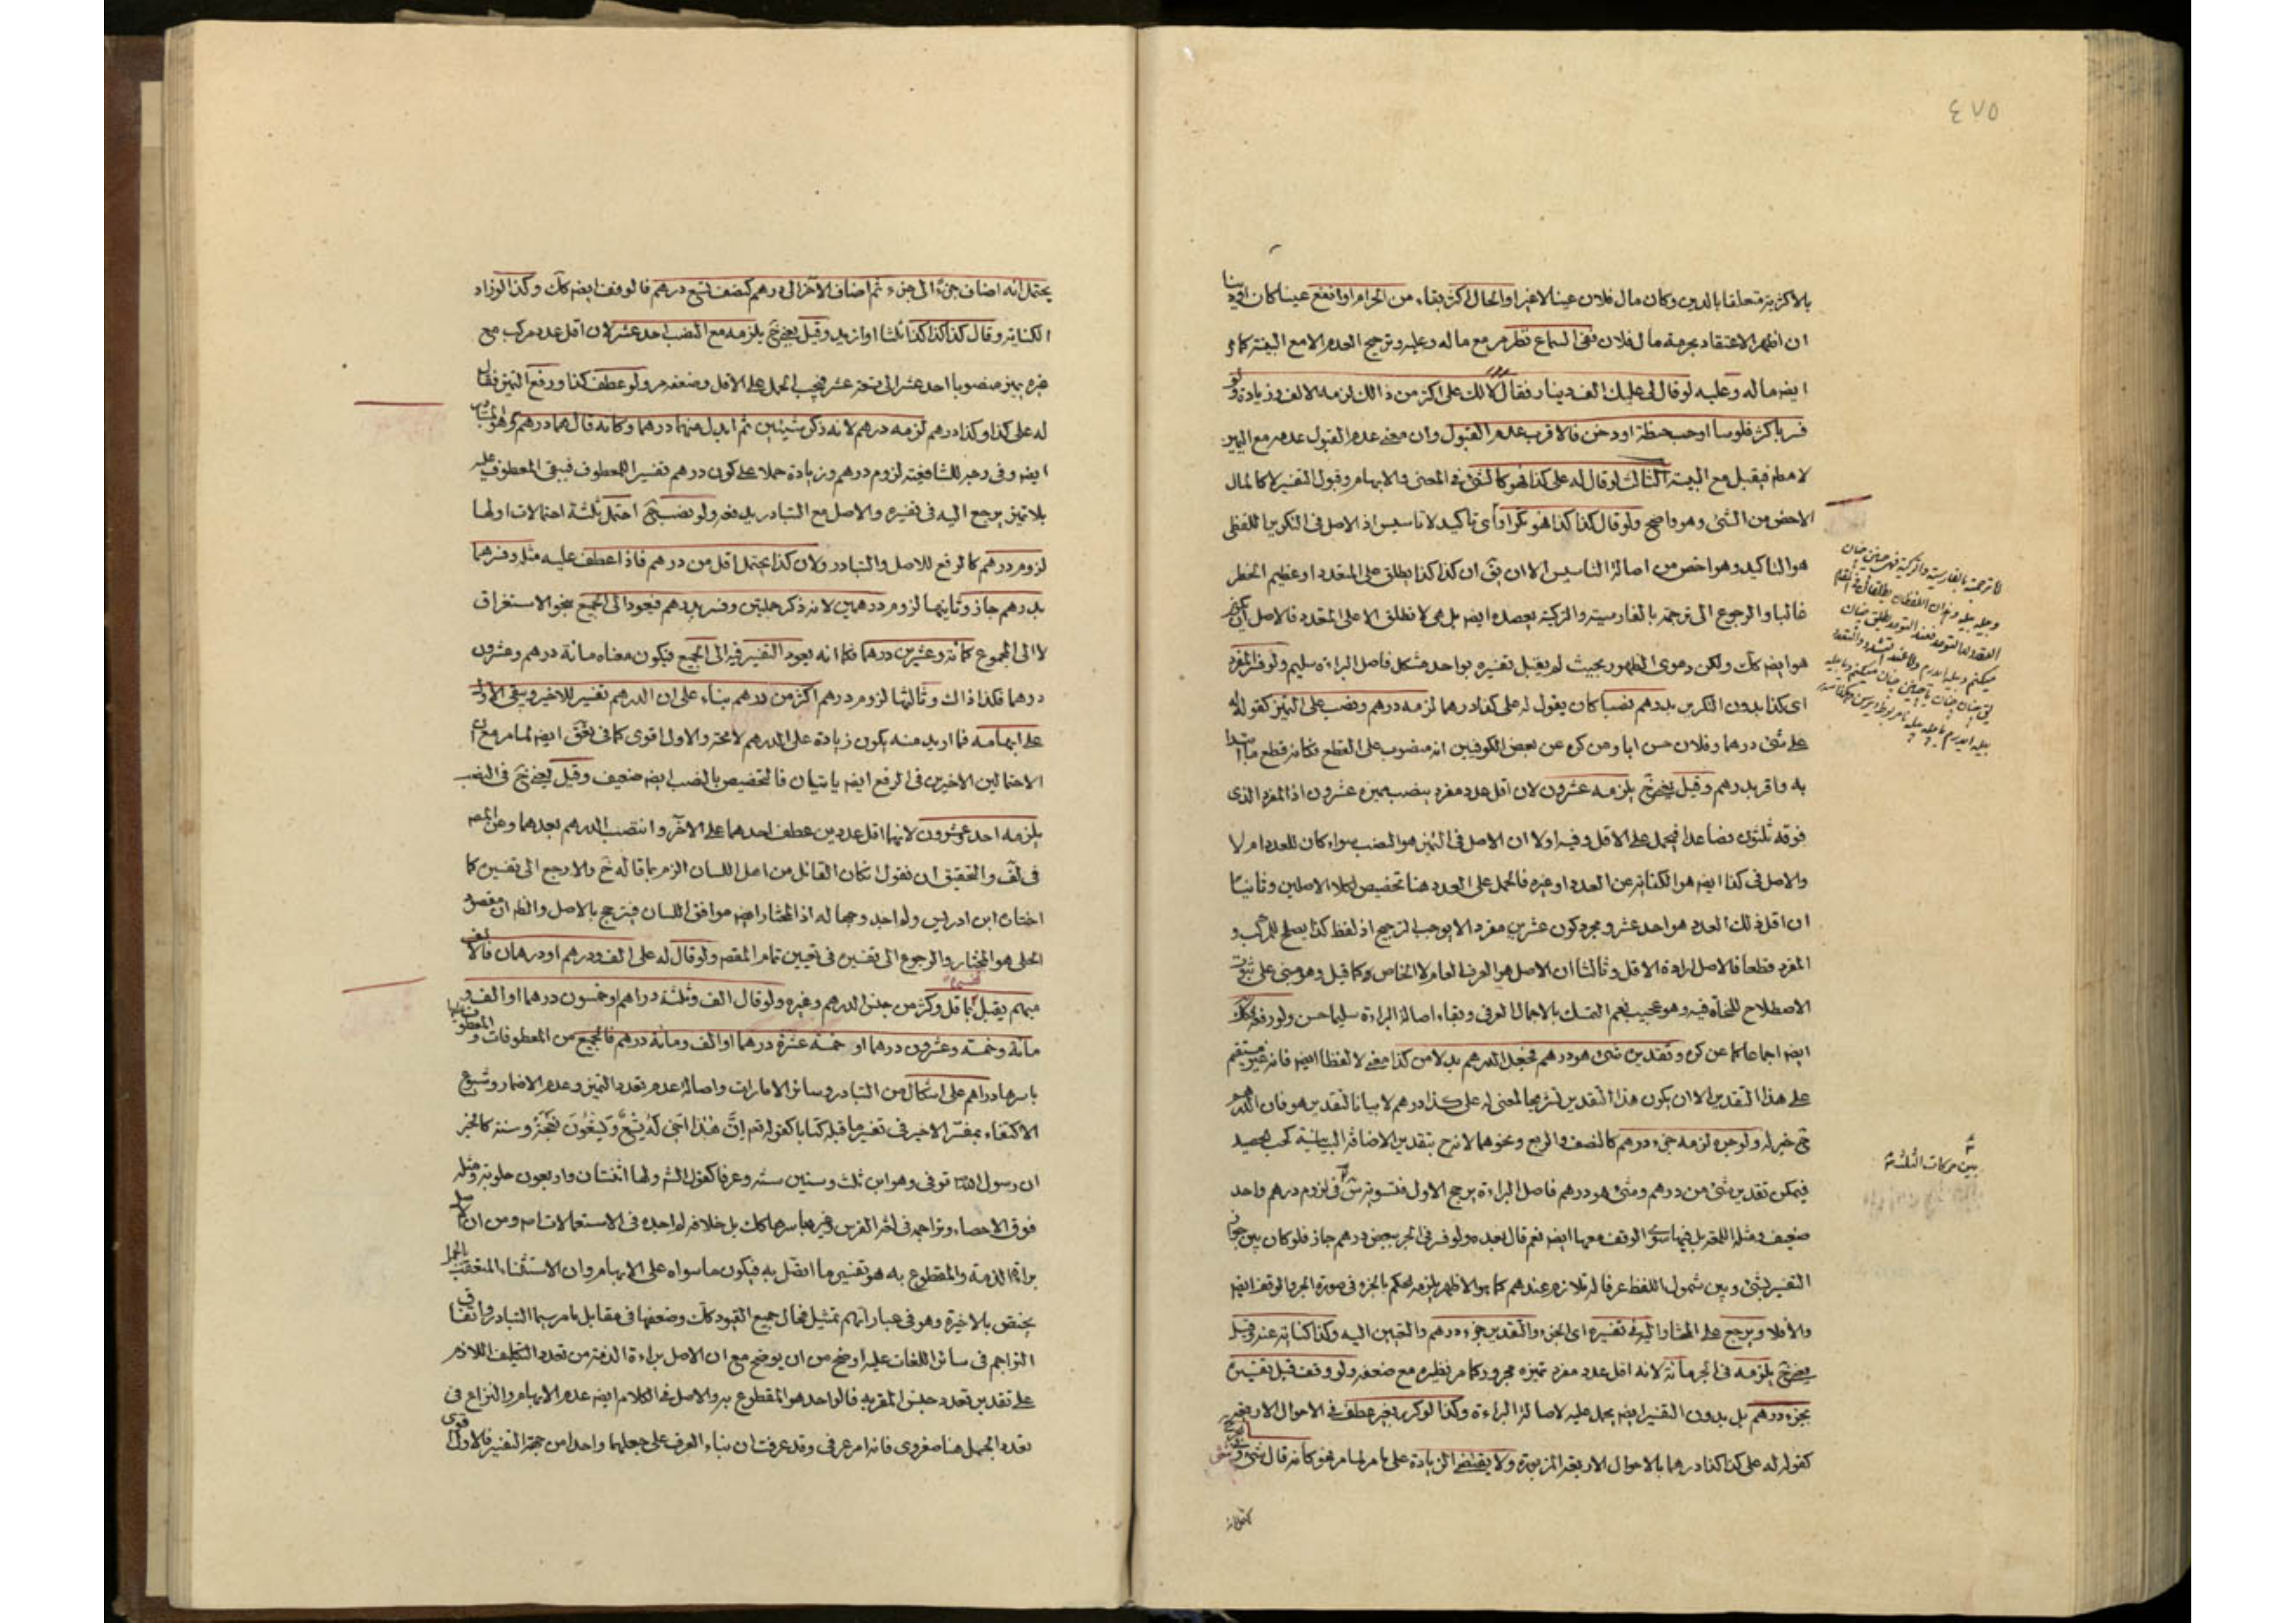 ٤٧٥
بالاكثرية متعلقا بالدين وكان مال فلان عينا لاغير او الحال اكثر بقاء من الحرام او انفع عينا كان او دينا
ان اظهر الاعتقاد بحرمة مال فلان ففى السماع نظر مر مع ماله وعليه وترجيح العدم الا مع البينة كما مر
ايضه ماله وعليه لو قال لى عليك الف دينار فقال لك على اكثر من ذالك لزمه الالف وزيادة ولو
فسر باكثر فلوسا او حب حنطة او دخن فالاقرب عدم القبول وان معنى عدم القبول عدمه مع اليمين
لا مطم فيقبل مع البينة الثالث لو قال له على كذا فهو كالشئ فى المعنى والابهام وقبول التفسير لا كالمال
الاخص من الشئ وهو واضح ولو قال كذا كذا فهو تكرار اى تاكيد لا تاسيس اذ الاصل فى التكرير اللفظى
هو التاكيد وهو اخص من اصالة التاسيس الا ان يق ان كذا كذا يطلق على المتعدد او عظيم الخطر
غالبا والرجوع الى ترجمته بالفارسية والتركية يعضده ايضه بل هى لا تطلق الا على المتعدد فالاصل
هو ايضه كك ولكن دعوى الظهور بحيث لم يقبل تفسيره بواحد مشكل فاصل البراءة سليم ولو فسر المفرد
اى كذا بدون التكرير بدرهم نصبا كان يقول له على كذا درهما لزمه درهم ونصب على التميز كقوله له
على شئ درهما وفلان حسن ابا وعن كره عن بعض الكوفيين انه منصوب على القطع فكانه قطع ما ابتدا
به واقر بدرهم وقيل يلزمه عشرون لان اقل عدد مفرد ينصب مميزه عشرون اذ المفرد الذى
فوقه ثلثون فصاعدا فيحمل على الاقل وفيه اولا ان الاصل فى التميز هو النصب سواء كان للعدد ام لا
والاصل فى كذا ايضه هو الكناية عن العدد او غيره فالحمل على العدد هنا تخصيص لكلا الاصلين وثانيا
ان اقل ذلك العدد هو احد عشر ومجرد كون عشرين مفردا لا يوجب الترجيح اذ لفظ كذا يصلح للمركب و
المفرد قطعا فالاصل ارادة الاقل وثالثا ان الاصل هو العرف العام لا الخاص وكما قيل وهو مبنى على ثبوت
الاصطلاح للنحاة فيه وهو عجيب نعم التمسك بالاجمال العرفى وبقاء اصالة البراءة سليما حسن ولو رفعه فكك
ايضه اجماعا كما عن كره وتقديره شئ هو درهم فجعل الدرهم بدلا من كذا معنى لا لفظا ايضه فانه غير مستقيم
على هذا التقدير الا ان يكون هذا التقدير تشريحا لمعنى له على كذا درهم لا بيانا لتقدير هو فان الدرهم
خبر له ولو جره لزمه جزء درهم كالنصف والربع ونحوهما لا درج بتقدير الاضافة البيانية كحب حصيد
فيمكن تقديره شئ من درهم وشئ هو درهم فاصل البراءة يرجح الاول فتسوية فى لزوم درهم واحد
ضعيف ومثله اللمعة بل فيها سوى الوقف معها ايضه نعم قال بعده ولو فسر فى الجر ببعض درهم جاز فلو كان بين جواز
التفسير بشئ وبين شمول اللفظ عرفا له تلازم عندهم كما هو الاظهر يلزمه لحكم بالجزء فى صورة الجر بالوقف ايضه
والا فلا ويرجع على المختار اليه فى تفسيره اى الجزء والتقدير جزء درهم والتعيين اليه وكذا كناية عنه وقيل
يلزمه فى الجر مائة لانه اقل عدد مفرد تميزه مجرور كما مر نظيره مع ضعفه ولو وقف قبل تفسيره
بجزء درهم بل بدون التفسير ايضه يحمل عليه لاصالة البراءة وكذا لو كرر بغير عطف فى الاحوال الاربعة
كقوله له على كذا كذا درهما بالاحوال الاربعة المزبورة ولا يقتضى الزيادة على ما مر لما مر فهو كانه قال شئ شئ
بين حركات الثلثة
يحتمل انه اضاف جزءا الى جزء ثم اضاف الآخر الى درهم كنصف تسع درهم فالوقف ايضه كك وكذا لو زاد
الكناية وقال كذا كذا كذا ثلثا او ازيد وقيل يلزمه مع النصب احد عشر لان اقل عدد مركب مع
غيره يميز منصوبا احد عشر الى تسعة عشر فيجب الحمل على الاقل وضعفه مر ولو عطف كذا ورفع التميز فقال
له على كذا وكذا درهم لزمه درهم لانه ذكر شيئين ثم ابدل منهما درهما وكانه قال هما درهم
ايضه وفى وجه للشافعية لزوم درهم وزيادة حملا على كون درهم تفسير المعطوف فيبقى المعطوف عليه
بلا تميز يرجع اليه فى تفسيره والاصل مع التبادر يدفعه ولو نصب احتمل ثلثة احتمالات اولها
لزوم درهم كالرفع للاصل والتبادر ولان كذا يحتمل اقل من درهم فاذا عطف عليه مثله وفسرهما
بدرهم جاز وثانيها لزوم درهمين لانه ذكر جملتين وفسر بدرهم فيعود الى الجميع بنحو الاستغراق
لا الى المجموع كمائة وعشرين درهما فكما انه يعود التفسير فيه الى الجميع فيكون معناه مائة درهم وعشرون
درهما فكذا ذاك وثالثها لزوم درهم اكثر من درهم بناء على ان الدرهم تفسير للاخير ويبقى الاول
على ابهامه فما اريد منه يكون زيادة على الدرهم لا محة والاول اقوى كما فى ايضه لما مر مع ان
الاحتمالين الاخيرين فى الرفع ايضه ياتيان فالتخصيص بالنصب ايضه ضعيف وقيل فى النصب
يلزمه احد وعشرون لانهما اقل عددين عطف احدهما على الآخر وانتصب الدرهم بعدهما وعن المصه
فى لف والتحقيق ان نقول ان كان القائل من اهل اللسان الزم بما قاله خ والا رجع الى تفسيره كما
اختاره ابن ادريس ولم اجد وجها له اذ المختار ايضه موافق اللسان فيترجح بالاصل والظه ان مقصود
الحلى هو المختار والرجوع الى تفسيره فى تعيين تمام المقصه ولو قال له على الف ودرهم او درهمان فالالف
مبهم يقبل بما قل وكثر من جنس الدرهم وغيره ولو قال الف وثلثة دراهم او خمسون درهما او الف و
مائة وخمسة وعشرون درهما او خمسة عشرة درهما او الف ومائة درهم فالجميع من المعطوفات و
باسرها دراهم على اشكال من التبادر وسائر الامارات واصالة عدم تعدد التميز وعدم الاضمار وشيوع
الاكتفاء بمفسر الاخير فى تفسير ما قبله كتابا كقوله تعم إِنَّ هٰذا أَخِي لَهُ تِسْعٌ وَتِسْعُونَ نَعْجَةً وسنة كالخبر
ان رسول الله توفى وهو ابن ثلث وستين سنة وعرفا كقول الشه ولها اثنتان واربعون حلوبة ومثله
فوق الاحصاء وتراجمه فى لغة الفرس وغيرها باسرها كك بل خلافه لم اجده فى الاستعمالات اصه ومن ان الاصل
براءة الذمة والمقطوع به هو تفسير ما اتصل به فيكون ما سواه على الابهام وان الاستثناء المتعقب بالجمل
يختص بالاخيرة وهو فى عباراتهم تمثيل فحال جميع القيود كك وضعفها فى مقابل ما مر سيما التبادر واتفاق
التراجم فى سائر اللغات عليه اوضح من ان يوضح مع ان الاصل براءة الذمة من تعدد التكليف اللازم
على تقدير تعدد جنس المقر به فالواحد هو المقطوع به والاصل فى الكلام ايضه عدم الابهام والنزاع فى
تعدد الجمل هنا صغروى فانه امر عرفى وقد عرفت ان بناء العرف على جعلهما واحدا من جهة التفسير فالاول اقوى